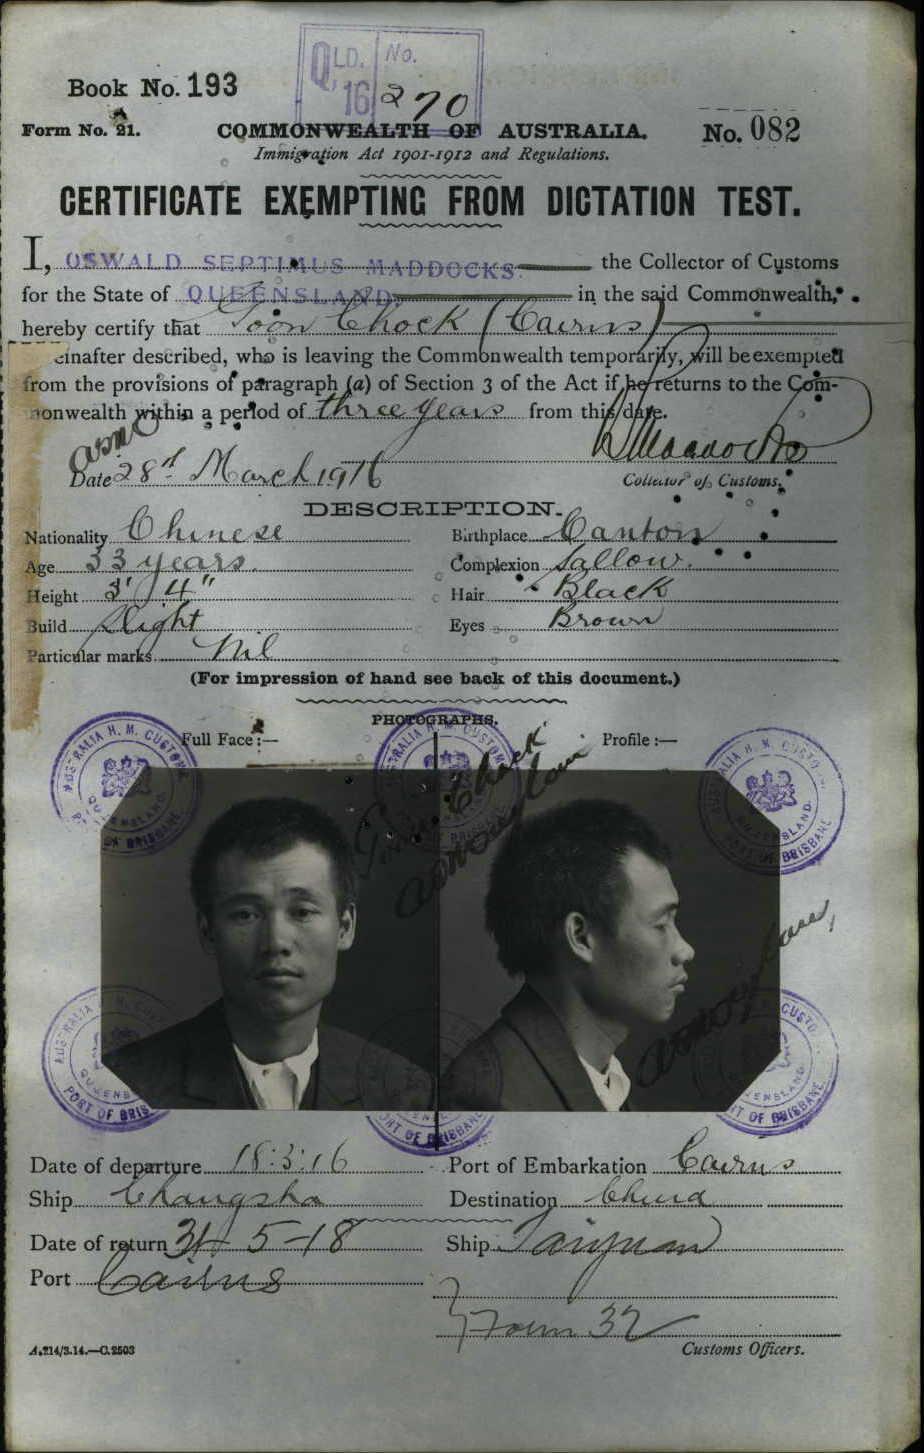 QLD. No.
16 270
Book No. 193
Form No. 21.
COMMONWEALTH OF AUSTRALIA.
No. 082
Immigration Act 1901-1912 and Regulations.
CERTIFICATE EXEMPTING FROM DICTATION TEST.
I, OSWALD SEPTIMUS MADDOCKS the Collector of Customs
for the State of QUEENSLAND in the said Commonwealth,
hereby certify that Toon Chock (Cairns)
einafter described, who is leaving the Commonwealth temporarily, will be exempted
from the provisions of paragraph (a) of Section 3 of the Act if he returns to the Com-
monwealth within a period of three years from this date.
Date 28th March 1916
Collector of Customs.
DESCRIPTION.
Nationality Chinese Birthplace Canton
Age 33 years. Complexion Sallow.
Height 5' 4" Hair Black
Build Slight Eyes Brown
Particular marks Nil
(For impression of hand see back of this document.)
PHOTOGRAPHS.
Full Face :— Profile :—
AUSTRALIA H. M. CUSTOMS
QUEENSLAND.
PORT OF BRISBANE
Date of departure 18:3:16 Port of Embarkation Cairns
Ship Changsha Destination China
Date of return 31-5-18 Ship Taiyuan
Port Cairns
Form 32
A.214/3.14.—C.2503 Customs Officers.